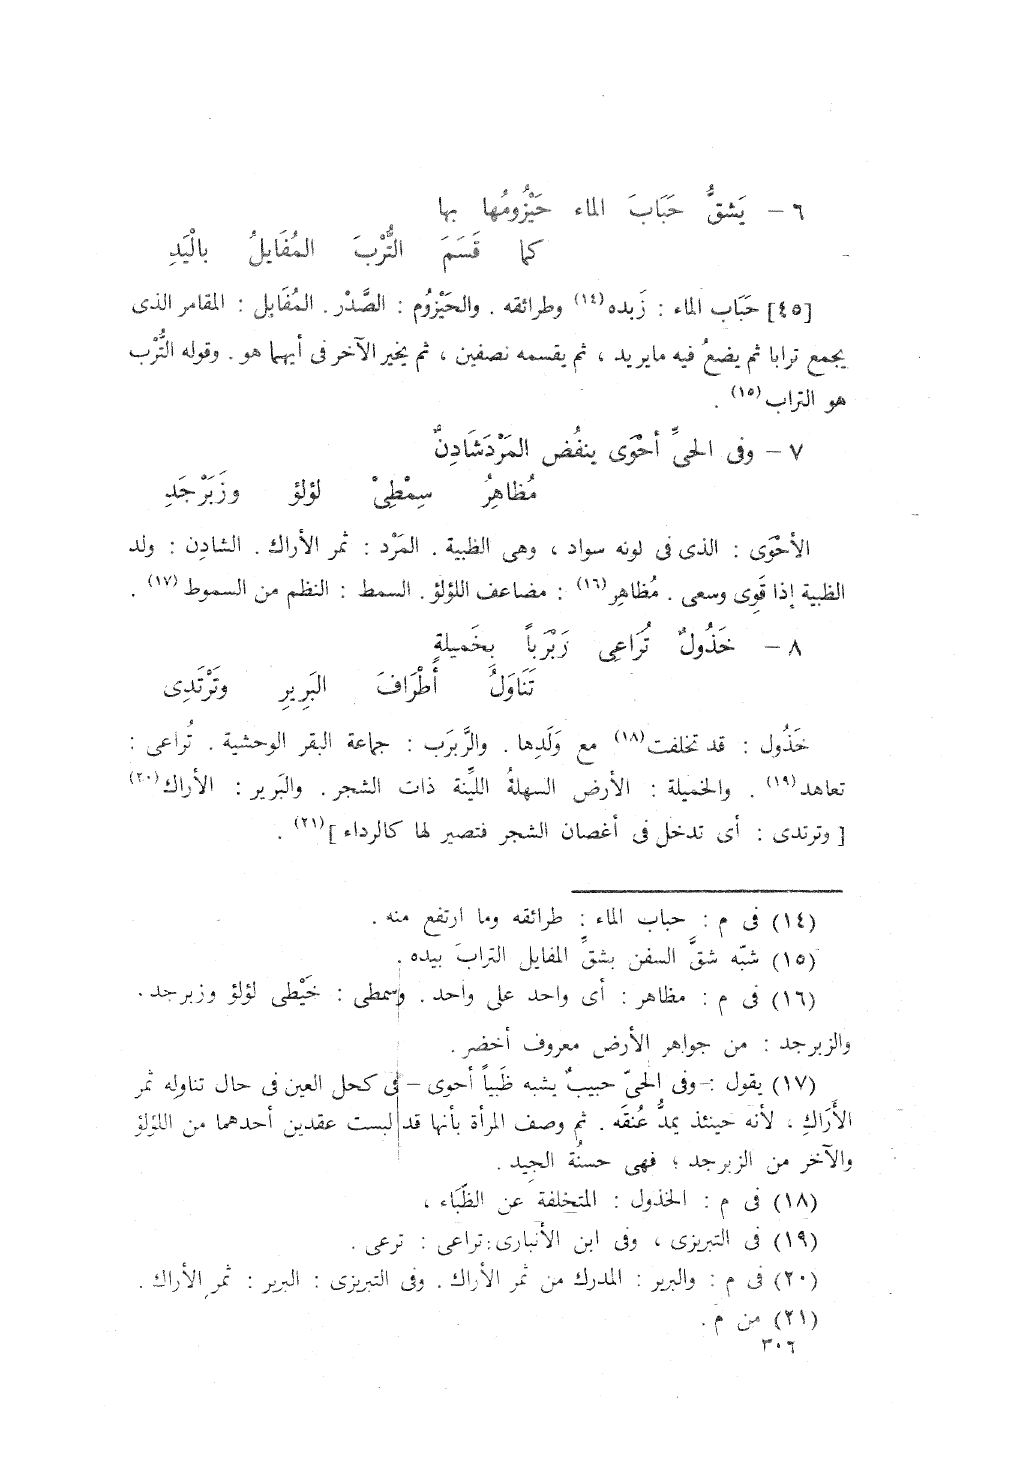 ٦ - يَشقُّ حَبَابَ الماء حَيْزُومُها بها
كما قَسَمَ التُّرْبَ المُفَايلُ بالْيَدِ
[٤٥] حَبَاب الماء : زَبده(١٤) وطرائقه . والحَيْزُوم : الصَّدْر . المُفَايل : المقامر الذى
يجمع ترابا ثم يضعُ فيه مايريد ، ثم يقسمه نصفين ، ثم يخير الآخر فى أيهما هو . وقوله التُّرْب
هو التراب(١٥) .
٧ - وفى الحىِّ أحْوَى ينفُض المَرْدَشَادِنٌ
مُظاهِرُ سِمْطِىْ لؤلؤ وزَبَرْجَدِ
الأحْوَى : الذى فى لونه سواد ، وهى الظبية . المَرْد : ثمر الأراك . الشادِن : ولد
الظبية إذا قَوِى وسعى . مُظاهِر(١٦) : مضاعف اللؤلؤ . السمط : النظم من السموط(١٧) .
٨ - خَذُولٌ تُرَاعِى رَبْرَباً بِخَميلةٍ
تَنَاوَلُ أطْرَافَ البَرِيرِ وتَرْتَدِى
خَذُول : قد تخلفت(١٨) مع وَلَدِها . والرَّبرَب : جماعة البقر الوحشية . تُراعى :
تعاهد(١٩) . والخميلة : الأرض السهلةُ الليِّنة ذات الشجر . والبَرير : الأراك(٢٠)
[ وترتدى : أى تدخل فى أغصان الشجر فتصير لها كالرداء ](٢١) .
(١٤) فى م : حباب الماء : طرائقه وما ارتفع منه .
(١٥) شبّه شقَّ السفن بشقِّ المفايل الترابَ بيده .
(١٦) فى م : مظاهر : أى واحد على واحد . وسمطى : خَيْطى لؤلؤ وزبرجد .
والزبرجد : من جواهر الأرض معروف أخضر .
(١٧) يقول :- وفى الحىّ حبيبٌ يشبه ظَبياً أحوى - فى كحل العين فى حال تناوله ثمر
الأَرَاكِ ، لأنه حينئذ يمدُّ عُنقَه . ثم وصف المرأة بأنها قد لبست عقدين أحدهما من اللؤلؤ
والآخر من الزبرجد ؛ فهى حسنُة الجِيد .
(١٨) فى م : الخذول : المتخلفة عن الظّبَاء ،
(١٩) فى التبريزى ، وفى ابن الأنبارى : تراعى : ترعى .
(٢٠) فى م : والبرير : المدرك من ثمر الأراك . وفى التبريزى : البرير : ثمر الأراك .
(٢١) من م .
٣٠٦